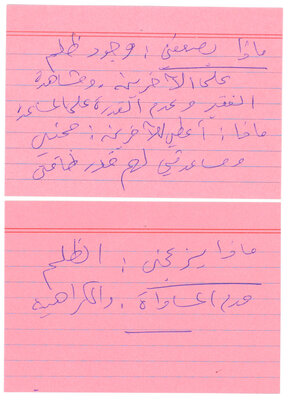 ماذا يضعفني : وجود ظلم
على الآخرين ومشاهدة
الفقر وعدم القدرة على المساعدة
ماذا : أعطي للآخرين : محبتي
ومساعدتي لهم قدر طاقتي
ماذا يزعجني : الظلم
عدم المساواة ، والكراهية